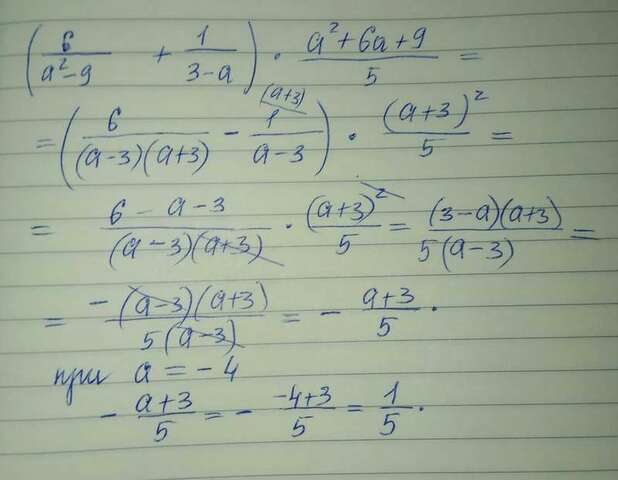 (6/(a²-9) + 1/(3-a)) · (a²+6a+9)/5 =
= (6/((a-3)(a+3)) - 1 (a+3)/(a-3)) · (a+3)²/5 =
= (6-a-3)/((a-3)(a+3)) · (a+3)²/5 = (3-a)(a+3)/(5(a-3)) =
= -(a-3)(a+3)/(5(a-3)) = - (a+3)/5 .
при a = -4
- (a+3)/5 = - (-4+3)/5 = 1/5 .